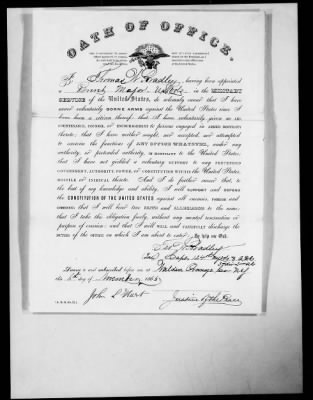 OATH OF OFFICE.
I, Thomas W. Bradley, having been appointed
a Brevet Major U.S. Vols. in the MILITARY
SERVICE of the United States, do solemnly swear that I have
never voluntarily BORNE ARMS against the United States since I
have been a citizen thereof; that I have voluntarily given no AID,
COUNTENANCE, COUNSEL, OR ENCOURAGEMENT to persons engaged in ARMED HOSTILITY
thereto; that I have neither sought, nor accepted, nor attempted
to exercise the functions of ANY OFFICE WHATEVER, under any
authority, or pretended authority, IN HOSTILITY to the United States;
that I have not yielded a voluntary SUPPORT to any PRETENDED
GOVERNMENT, AUTHORITY, POWER, OR CONSTITUTION WITHIN the UNITED STATES,
HOSTILE OR INIMICAL thereto. And I do further swear that, to
the best of my knowledge and ability, I will SUPPORT and DEFEND
the CONSTITUTION OF THE UNITED STATES against all enemies, FOREIGN AND
DOMESTIC; that I will bear TRUE FAITH AND ALLEGIANCE to the same;
that I take this obligation freely, without any mental reservation or
purpose of evasion; and that I WILL well and FAITHFULLY discharge the
DUTIES of the OFFICE on which I am about to enter: So help me God.
Bradley
Late Capt. 124th
Sworn to and subscribed before me at Walden Orange Co. N.Y.
this day of November 1865
John
Justice of the Peace